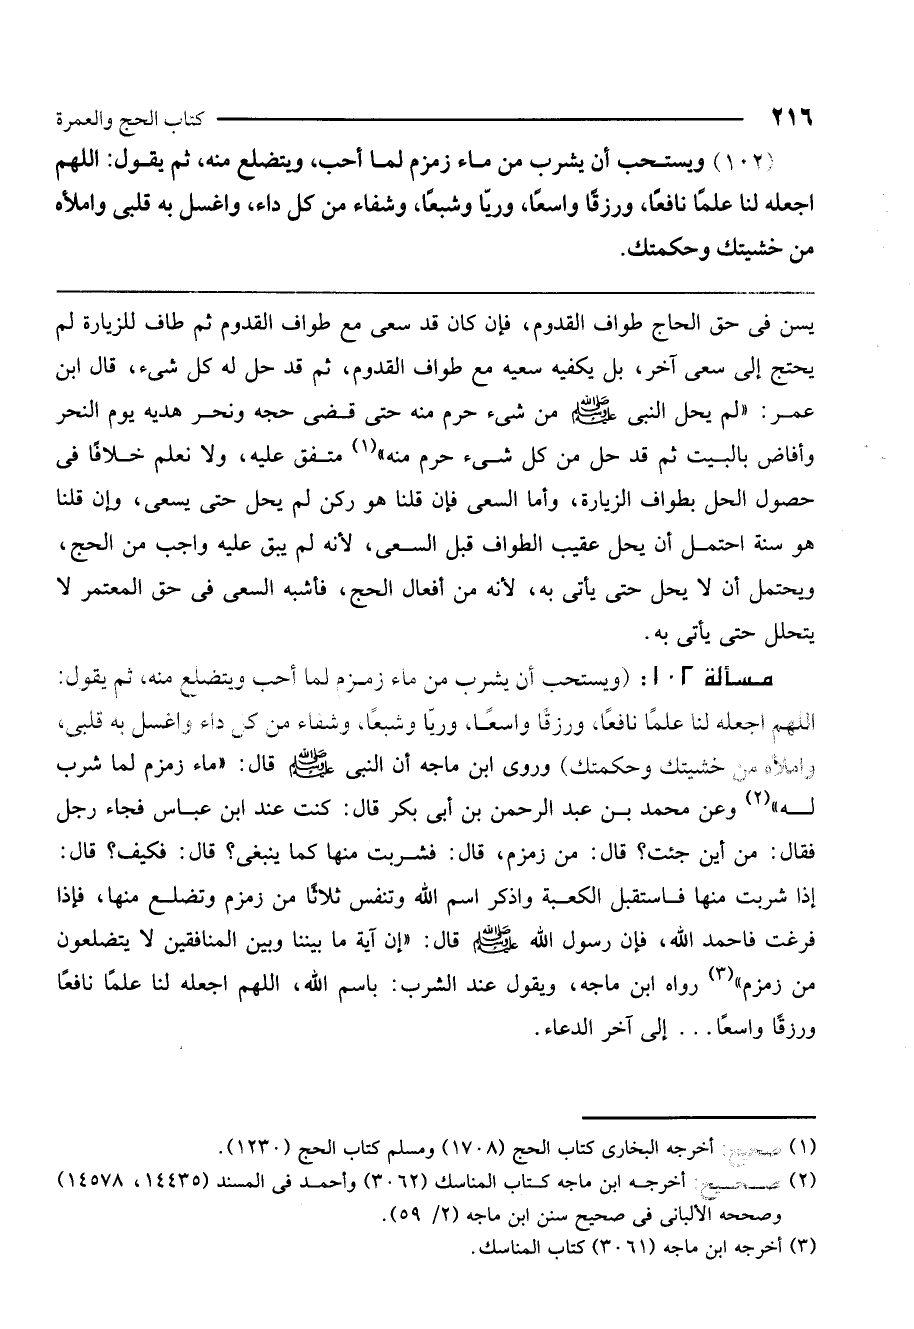 ٢١٦ كتاب الحج والعمرة
(١٠٢) ويستحب أن يشرب من ماء زمزم لما أحب، ويتضلع منه، ثم يقول: اللهم
اجعله لنا علمًا نافعًا، ورزقًا واسعًا، وريّا وشبعًا، وشفاء من كل داء، واغسل به قلبى واملأه
من خشيتك وحكمتك.
يسن فى حق الحاج طواف القدوم، فإن كان قد سعى مع طواف القدوم ثم طاف للزيارة لم
يحتج إلى سعى آخر، بل يكفيه سعيه مع طواف القدوم، ثم قد حل له كل شىء، قال ابن
عمر: «لم يحل النبى ﷺ من شىء حرم منه حتى قضى حجه ونحر هديه يوم النحر
وأفاض بالبيت ثم قد حل من كل شىء حرم منه»(١) متفق عليه، ولا نعلم خلافًا فى
حصول الحل بطواف الزيارة، وأما السعى فإن قلنا هو ركن لم يحل حتى يسعى، وإن قلنا
هو سنة احتمل أن يحل عقيب الطواف قبل السعى، لأنه لم يبق عليه واجب من الحج،
ويحتمل أن لا يحل حتى يأتى به، لأنه من أفعال الحج، فأشبه السعى فى حق المعتمر لا
يتحلل حتى يأتى به.
مسألة ١٠٢: (ويستحب أن يشرب من ماء زمزم لما أحب ويتضلع منه، ثم يقول:
اللهم اجعله لنا علمًا نافعًا، ورزقًا واسعًا، وريّا وشبعًا، وشفاء من كل داء واغسل به قلبى،
واملأه من خشيتك وحكمتك) وروى ابن ماجه أن النبى ﷺ قال: «ماء زمزم لما شرب
له»(٢) وعن محمد بن عبد الرحمن بن أبى بكر قال: كنت عند ابن عباس فجاء رجل
فقال: من أين جئت؟ قال: من زمزم، قال: فشربت منها كما ينبغى؟ قال: فكيف؟ قال:
إذا شربت منها فاستقبل الكعبة واذكر اسم الله وتنفس ثلاثًا من زمزم وتضلع منها، فإذا
فرغت فاحمد الله، فإن رسول الله ﷺ قال: «إن آية ما بيننا وبين المنافقين لا يتضلعون
من زمزم»(٣) رواه ابن ماجه، ويقول عند الشرب: باسم الله، اللهم اجعله لنا علمًا نافعًا
ورزقًا واسعًا... إلى آخر الدعاء.
(١) صحيح: أخرجه البخارى كتاب الحج (١٧٠٨) ومسلم كتاب الحج (١٢٣٠).
(٢) صحيح: أخرجه ابن ماجه كتاب المناسك (٣٠٦٢) وأحمد فى المسند (١٤٤٣٥، ١٤٥٧٨)
وصححه الألبانى فى صحيح سنن ابن ماجه (٢/ ٥٩).
(٣) أخرجه ابن ماجه (٣٠٦١) كتاب المناسك.